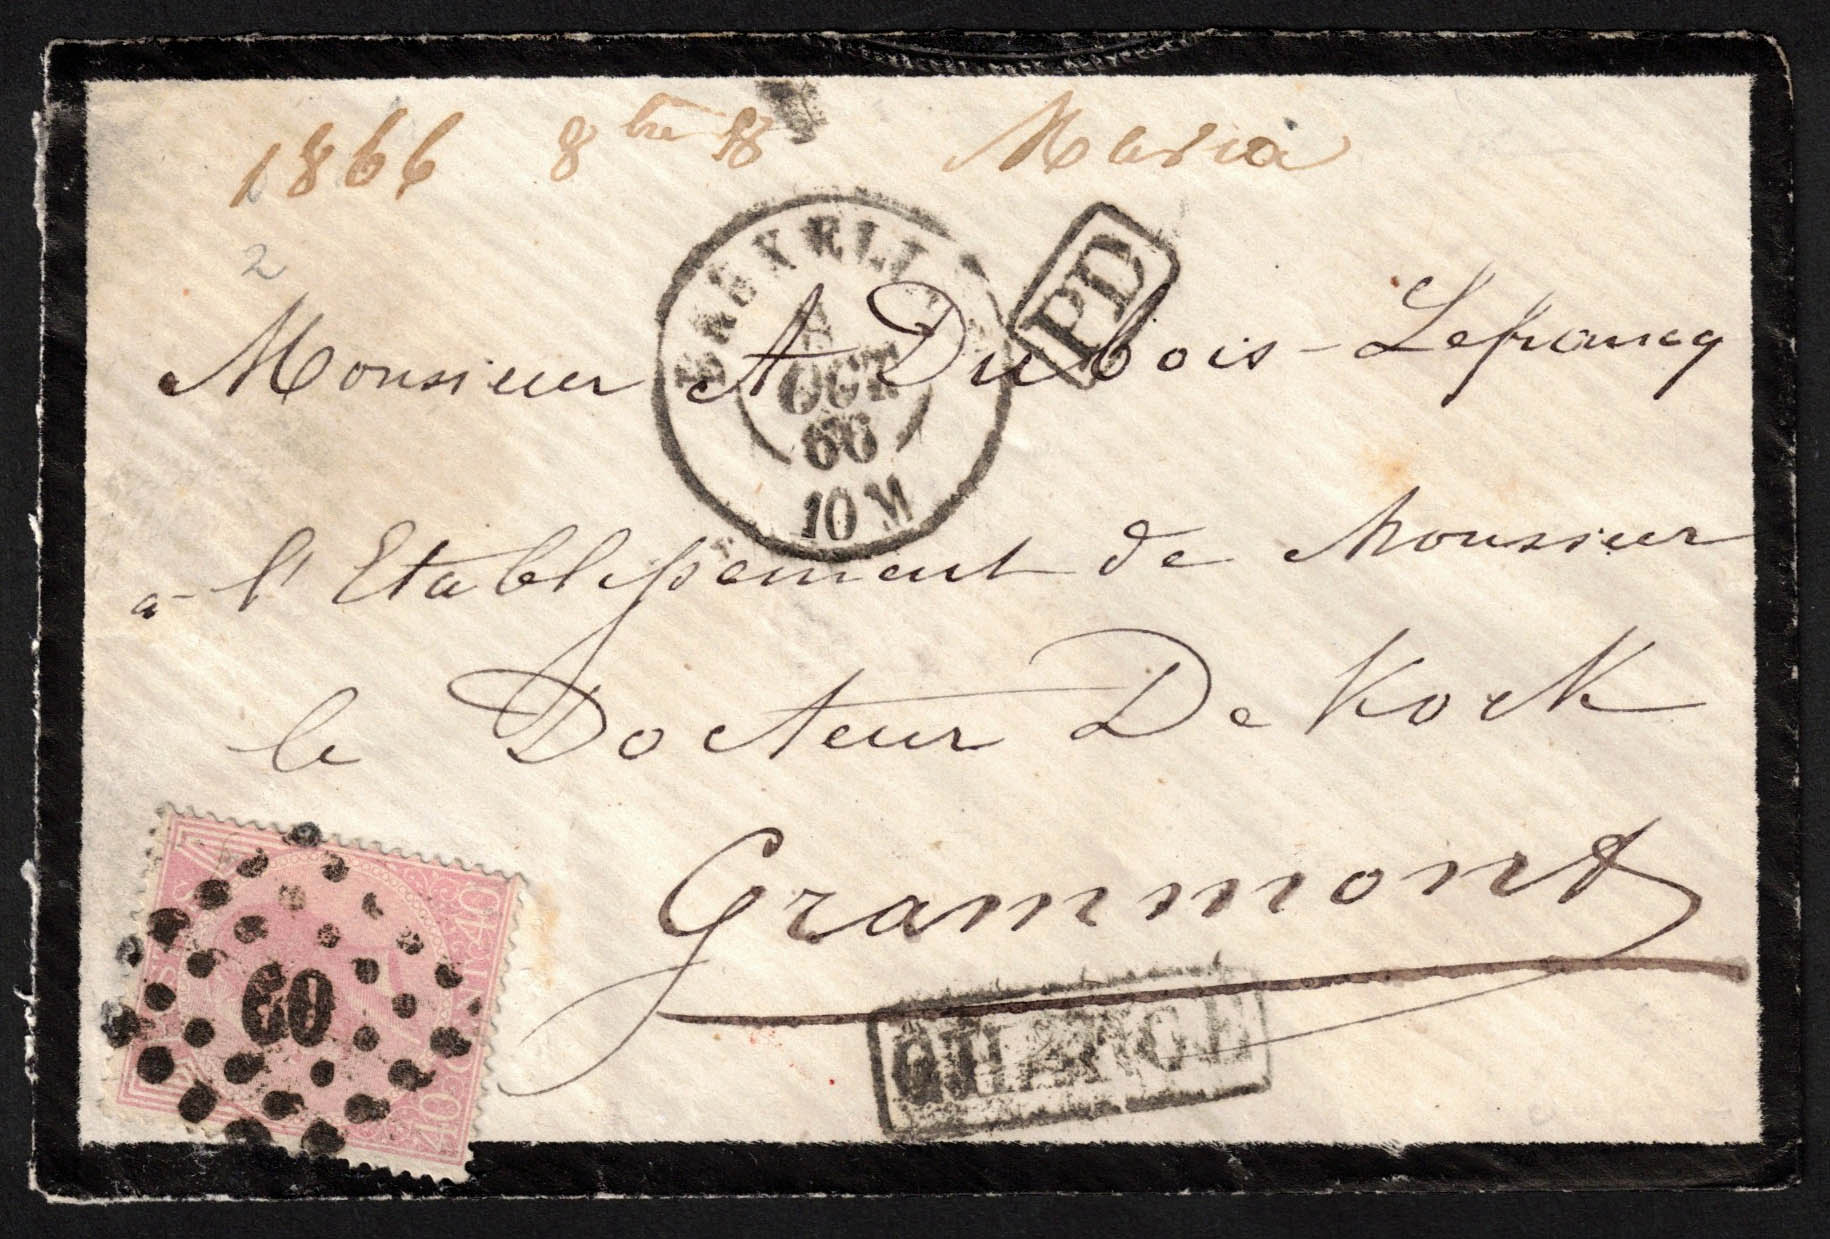 1866 8bre 8 Maria
2
BRUXELLES
PD
8
OCT
66
10 M
Monsieur A Dubois-Lefrancq
a l'Etablissement de Monsieur
le Docteur De Kock
Grammont
CHANGE
60
40
40